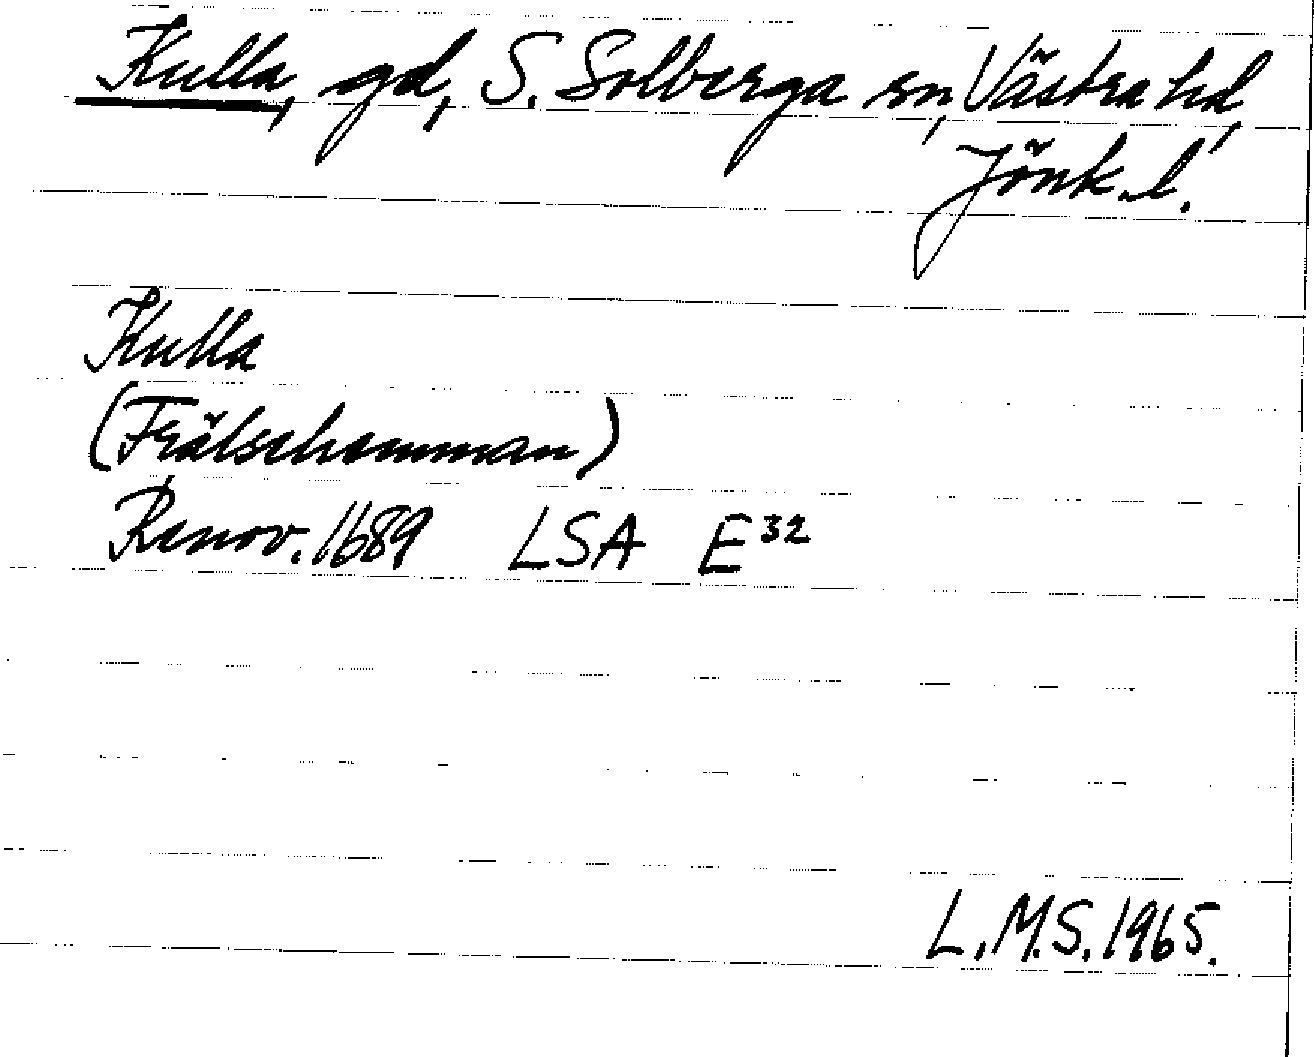 Kulla, gd, S. Solberga sn, Västra hd,
Jönk. l.
Kulla
(Frälsehemman)
Renov. 1689 LSA E32
L.M.S. 1965.